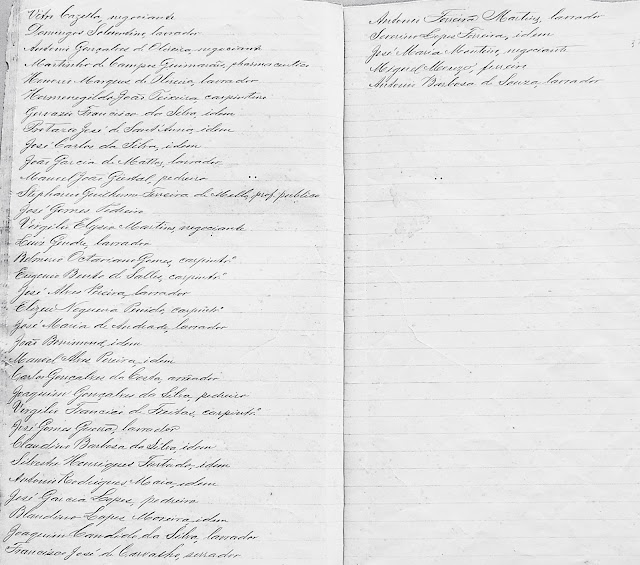 Vitor Cazella, negociante
Domingos Solentino, lavrador
Antonio Gonçalves d'Oliveira, negociante
Martinho de Campos Guimarães, pharmaceutico
Honorio Marques de Oliveira, lavrador
Hermenegildo João Teixeira, carpinteiro
Gervasio Francisco da Silva, idem
Protazio José de Sant'Anna, idem
José Carlos da Silva, idem
João Garcia de Mattos, lavrador
Manoel João, pedreiro
Stephanio Guilherme Ferreira de Mello, prof. publico
José Gomes Pedreiro
Virgilio Elysio Martins, negociante
Luis, lavrador
Belmiro Octaviano Gomes, carpintrº
Eugenio Bento de Salles, carpintrº
José Alves Vieira, lavrador
Elizeu Nogueira Penido, carpintrº
José Maria de Andrade, lavrador
João, idem
Manoel Alves Pereira, idem
Carlos Gonçalves da Costa,
Joaquim Gonçalves da Silva, pedreiro
Virgilio Francisco de Freitas, carpintrº
José Gomes, lavrador
Claudino Barbosa da Silva, idem
Silvestre Henriques Furtado, idem
Antonio Rodrigues Maia, idem
José Garcia Lopes, pedreiro
Blandino Lopes Moreira, idem
Joaquim Candido da Silva, lavrador
Francisco José de Carvalho, serrador
Antonio Ferreira Martins, lavrador
Severino Lopes Ferreira, idem
José Maria Martins, negociante
Miguel, ferreiro
Antonio Barbosa de Souza, lavrador